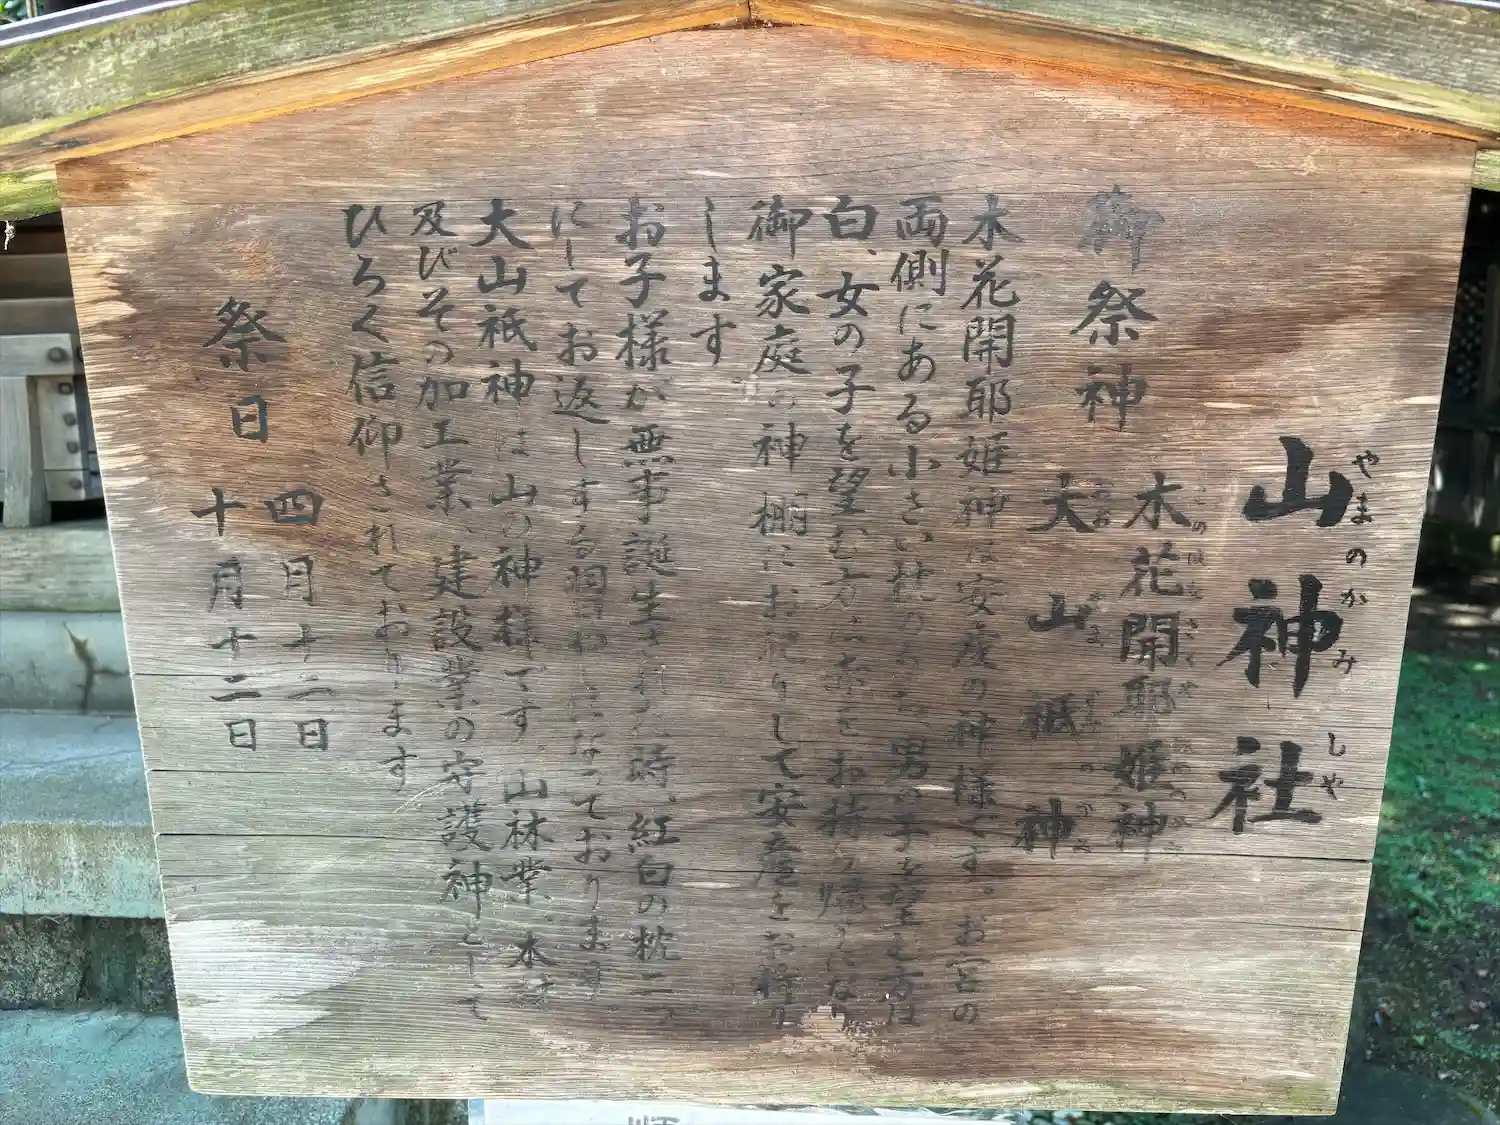 山神社
やまのかみしや
御祭神
木花開耶姫神
このはなさくやひめのみこと
大山祇神
おおやまずみのかみ
木花開耶姫神は安産の神様です。お宮の
両側にある小さい枕のうち、男の子を望む方は
白、女の子を望む方は赤をお持ち帰りになり
御家庭の神棚にお祀りして安産をお祈り
します
お子様が無事誕生された時、紅白の枕二つ
にしてお返しする習わしになっております
大山祇神は山の神様です。山林業、木材
及びその加工業、建設業の守護神として
ひろく信仰されております
祭日
四月十二日
十月十二日